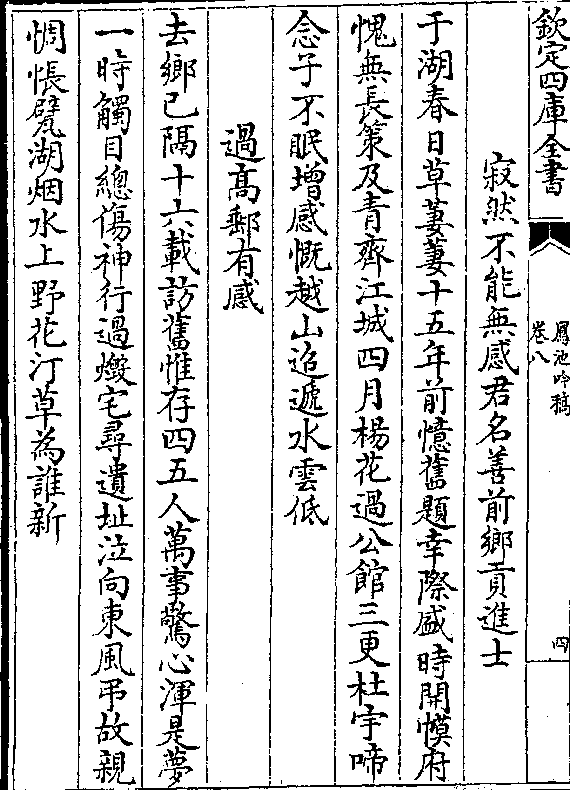 欽定四庫全書
鳳池吟稿
卷八
四
寂然不能無感君名善前鄉貢進士
于湖春日草萋萋十五年前憶舊題幸際盛時開幙府
愧無長策及青齊江城四月楊花過公館三更杜宇啼
念子不眠增感慨越山迢遞水雲低
過高郵有感
去鄉已隔十六載訪舊惟存四五人萬事驚心渾是夢
一時觸目總傷神行過燬宅尋遺址泣向東風弔故親
惆悵甓湖烟水上野花汀草為誰新